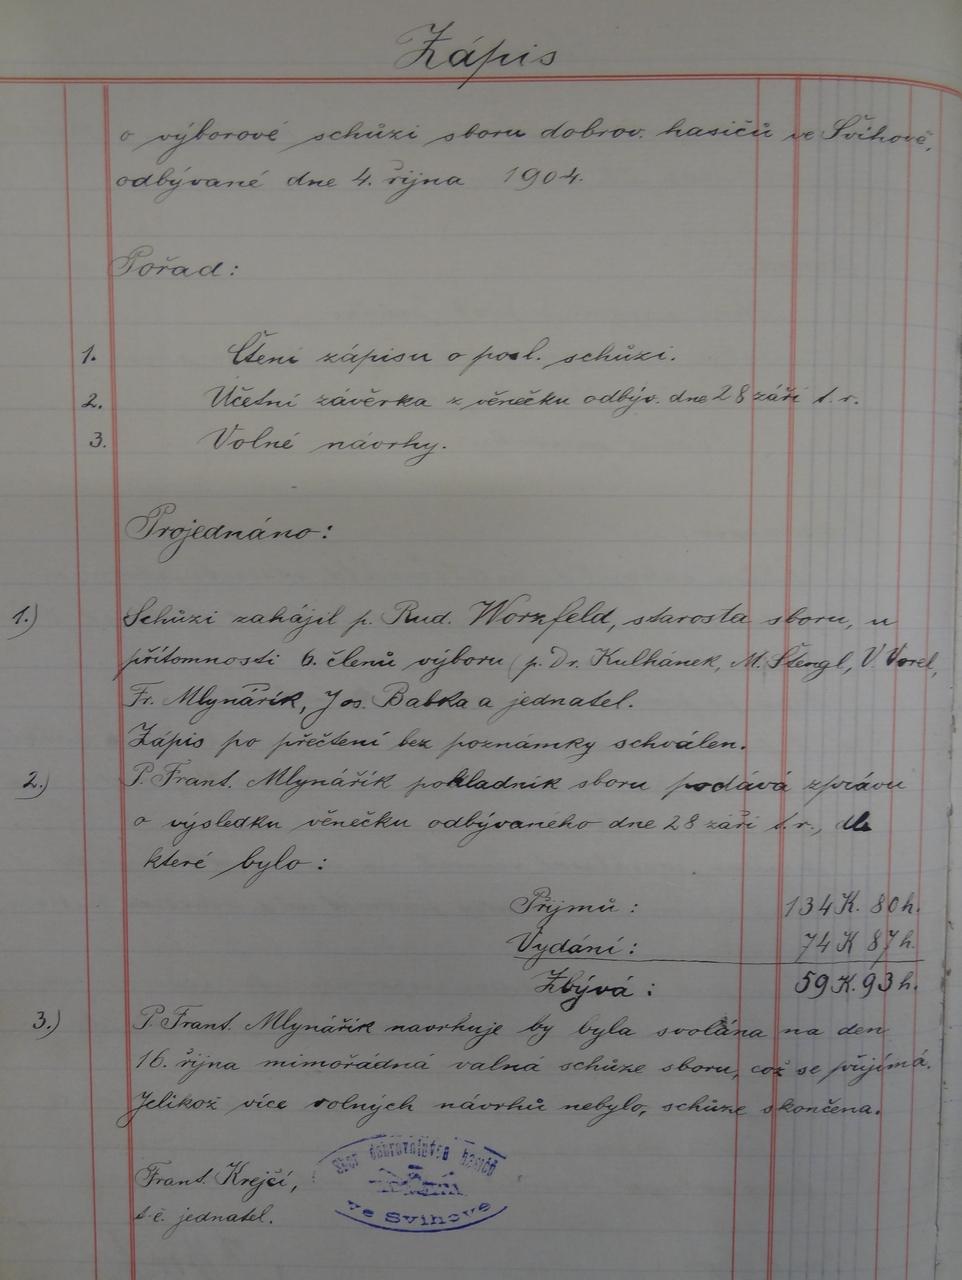 Zápis
o výborové schůzi sboru dobrov. hasičů ve Švihově,
odbývané dne 4. října 1904.
Pořad:
1. Čtení zápisu o posl. schůzi.
2. Účetní závěrka z věnečku odbýv. dne 28 září t. r.
3. Volné návrhy.
Projednáno:
1.) Schůzi zahájil p. Rud. Worzfeld, starosta sboru, u
přítomnosti 6. členů výboru (p. Dr. Kulhánek, M. Štengl, V. Vorel,
Fr. Mlynářík, Jos. Babka a jednatel.
Zápis po přečtení bez poznámky schválen.
2.) P. Frant. Mlynářík pokladník sboru podává zprávu
o výsledku věnečku odbývaného dne 28 září t. r., dle
které bylo:
Příjmů: 134 K. 80 h.
Vydání: 74 K 87 h.
Zbývá: 59 K. 93 h.
3.) P. Frant. Mlynářík navrhuje by byla svolána na den
16. října mimořádná valná schůze sboru, což se přijímá.
Jelikož více volných návrhů nebylo, schůze skončena.
Frant. Krejčí,
t. č. jednatel.
Sbor dobrovolných hasičů
ve Švihově